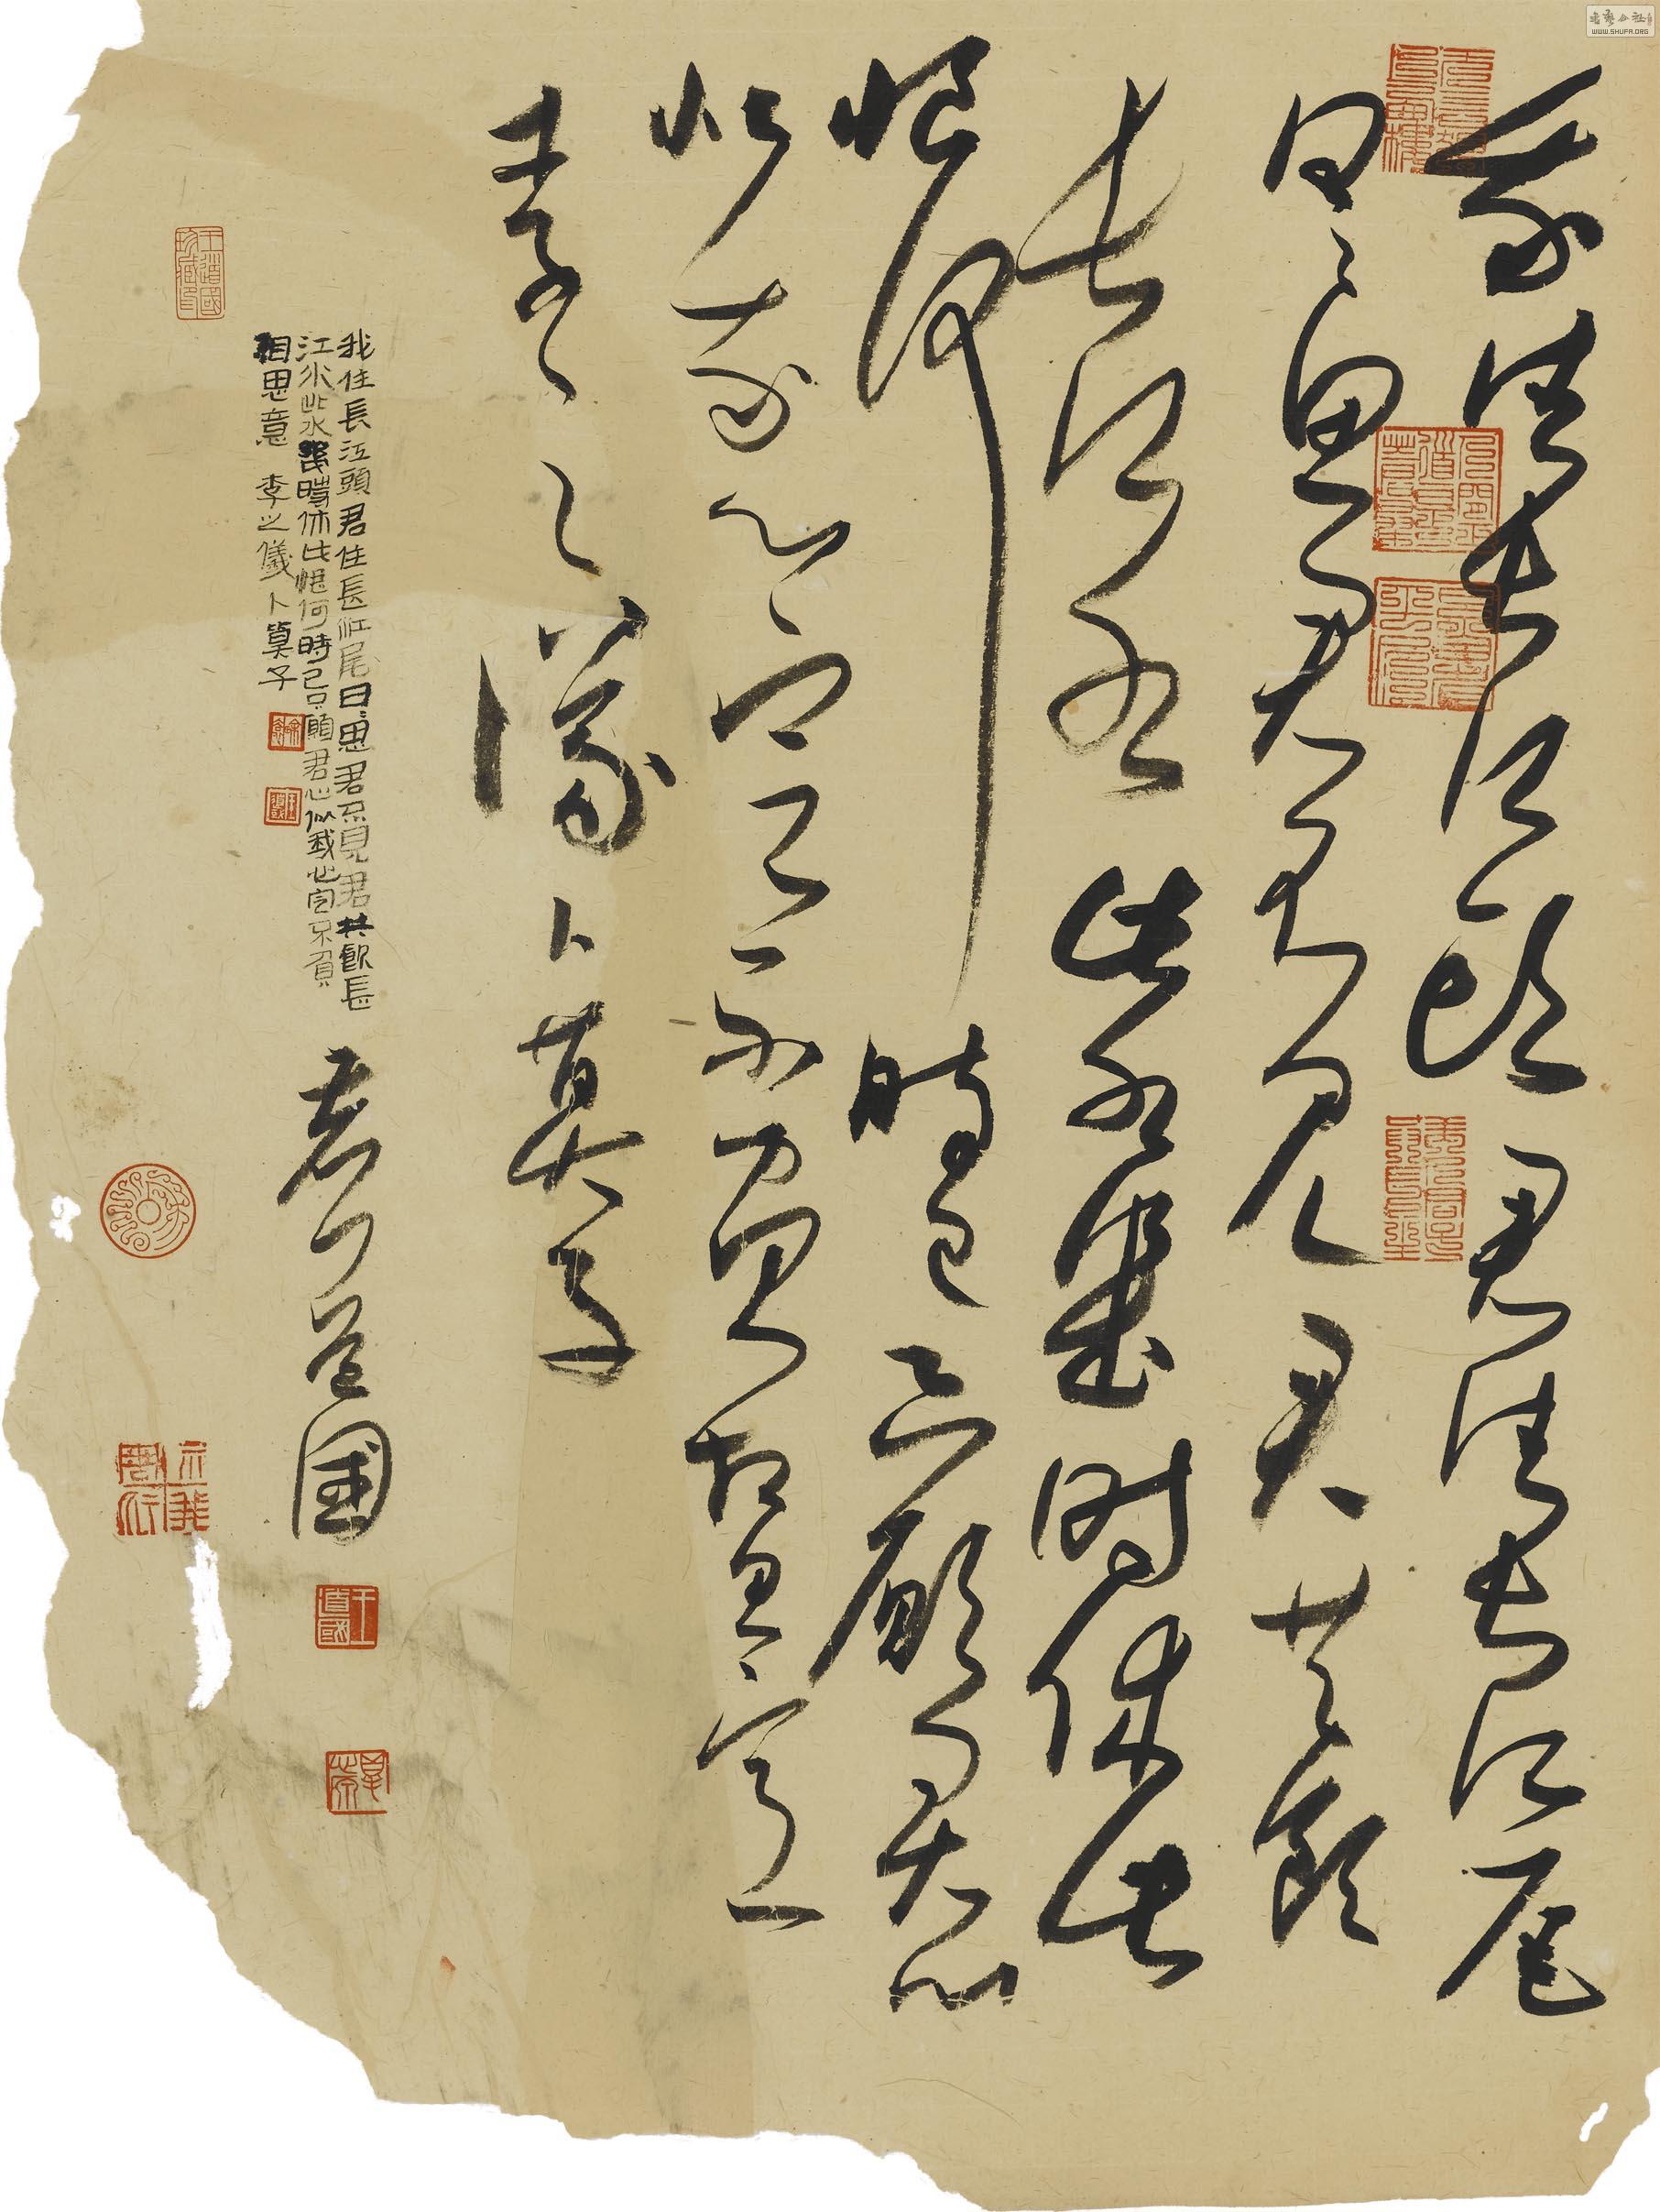 我住長江頭君住長江尾
日日思君不見君共飲
長江水此水幾时休此
恨何時已只願君心
似我心定不負相思意
李之儀卜算子
我住長江頭君住長江尾日日思君不見君共飲長
江水此水幾時休此恨何時已只願君心似我心定不負
相思意 李之儀卜算子
道國
王道國
WWW.SHUFA.ORG